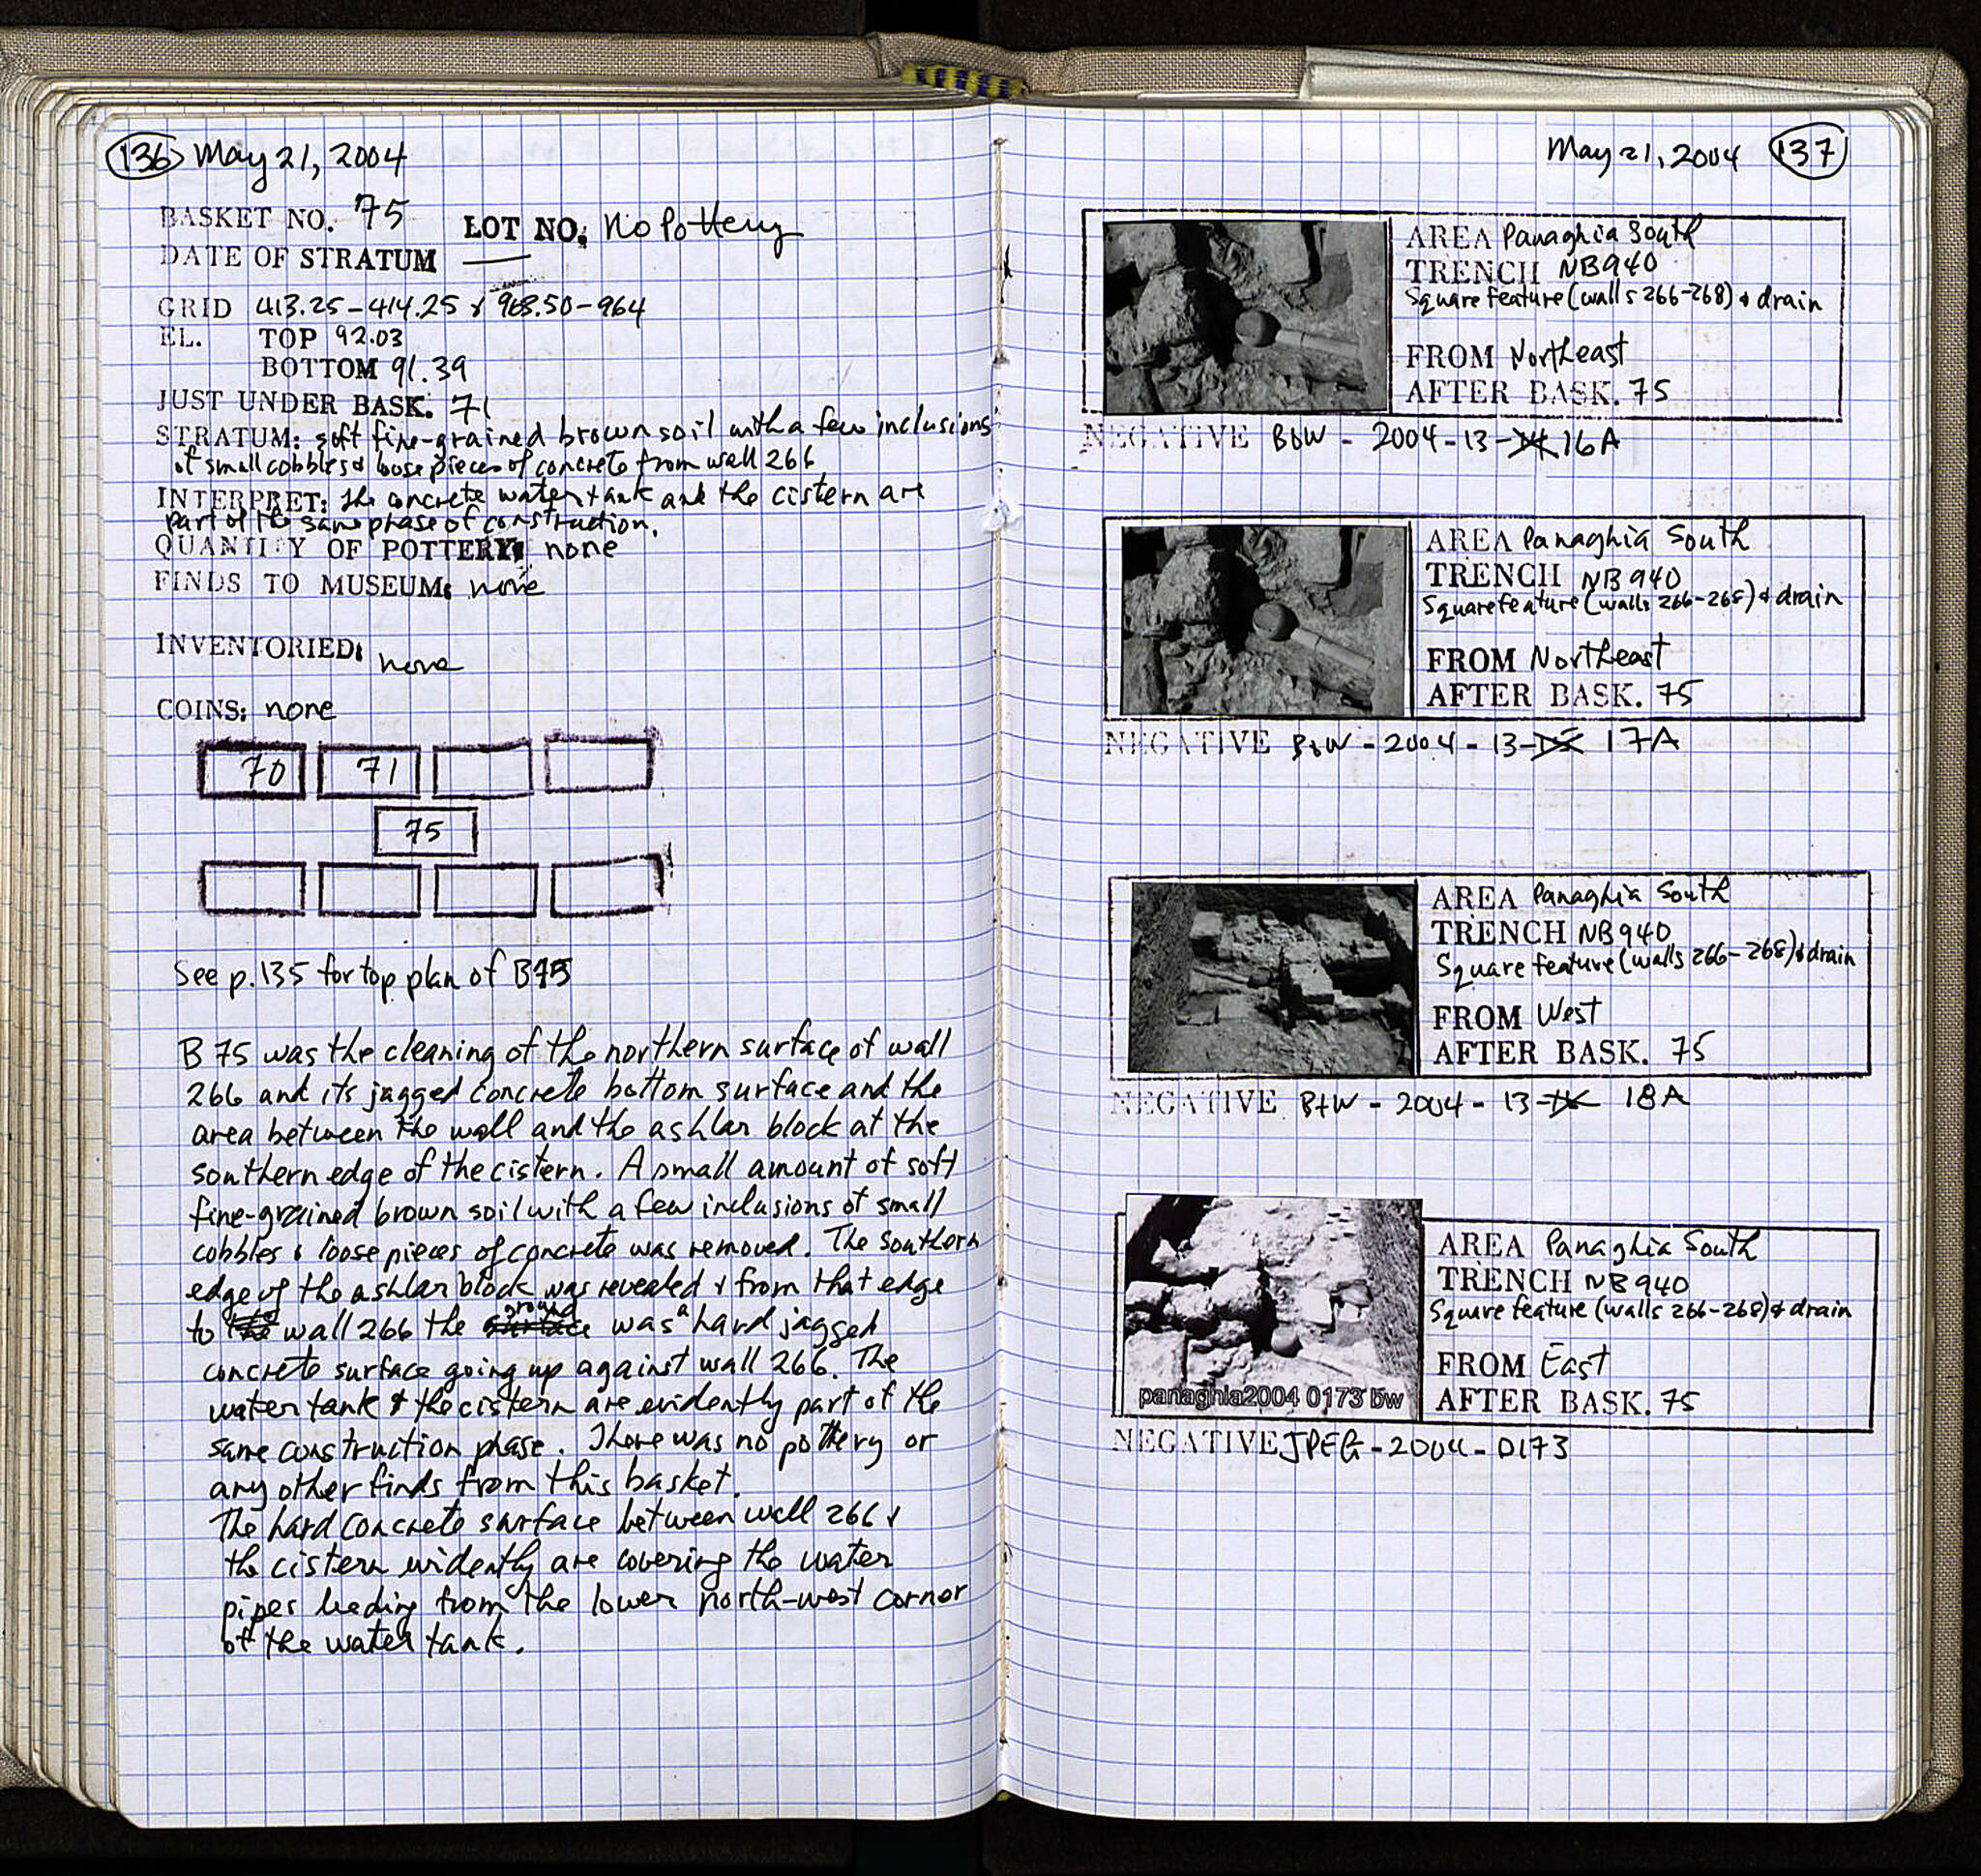 136 May 21, 2004
BASKET NO. 75 LOT NO. No Pottery
DATE OF STRATUM —
GRID 413.25-414.25 x 968.50-964
EL. TOP 92.03
BOTTOM 91.39
JUST UNDER BASK. 71
STRATUM: soft fine-grained brown soil with a few inclusions
of small cobbles & loose pieces of concrete from wall 266
INTERPRET: The concrete water tank and the cistern are
part of the same phase of construction.
QUANTITY OF POTTERY: none
FINDS TO MUSEUM: none
INVENTORIED: none
COINS: none
70 71
75
See p. 135 for top plan of B75
B 75 was the cleaning of the northern surface of wall
266 and its jagged concrete bottom surface and the
area between the wall and the ashlar block at the
southern edge of the cistern. A small amount of soft
fine-grained brown soil with a few inclusions of small
cobbles & loose pieces of concrete was removed. The southern
edge of the ashlar block was revealed & from that edge
to the wall 266 the surface ground was a hard jagged
concrete surface going up against wall 266. The
water tank & the cistern are evidently part of the
same construction phase. There was no pottery or
any other finds from this basket.
The hard concrete surface between wall 266 &
the cistern evidently are covering the water
pipes leading from the lower north-west corner
of the water tank.
May 21, 2004 137
AREA Panaghia South
TRENCH NB940
Square feature (walls 266-268) & drain
FROM Northeast
AFTER BASK. 75
NEGATIVE B&W - 2004 - 13 - 16A
AREA Panaghia South
TRENCH NB940
Square feature (walls 266-268) & drain
FROM Northeast
AFTER BASK. 75
NEGATIVE B+W - 2004 - 13 - 17A
AREA Panaghia South
TRENCH NB940
Square feature (walls 266-268) & drain
FROM West
AFTER BASK. 75
NEGATIVE B+W - 2004 - 13 - 18A
panaghia2004 0173 bw
AREA Panaghia South
TRENCH NB940
Square feature (walls 266-268) & drain
FROM East
AFTER BASK. 75
NEGATIVE JPEG - 2004 - 0173